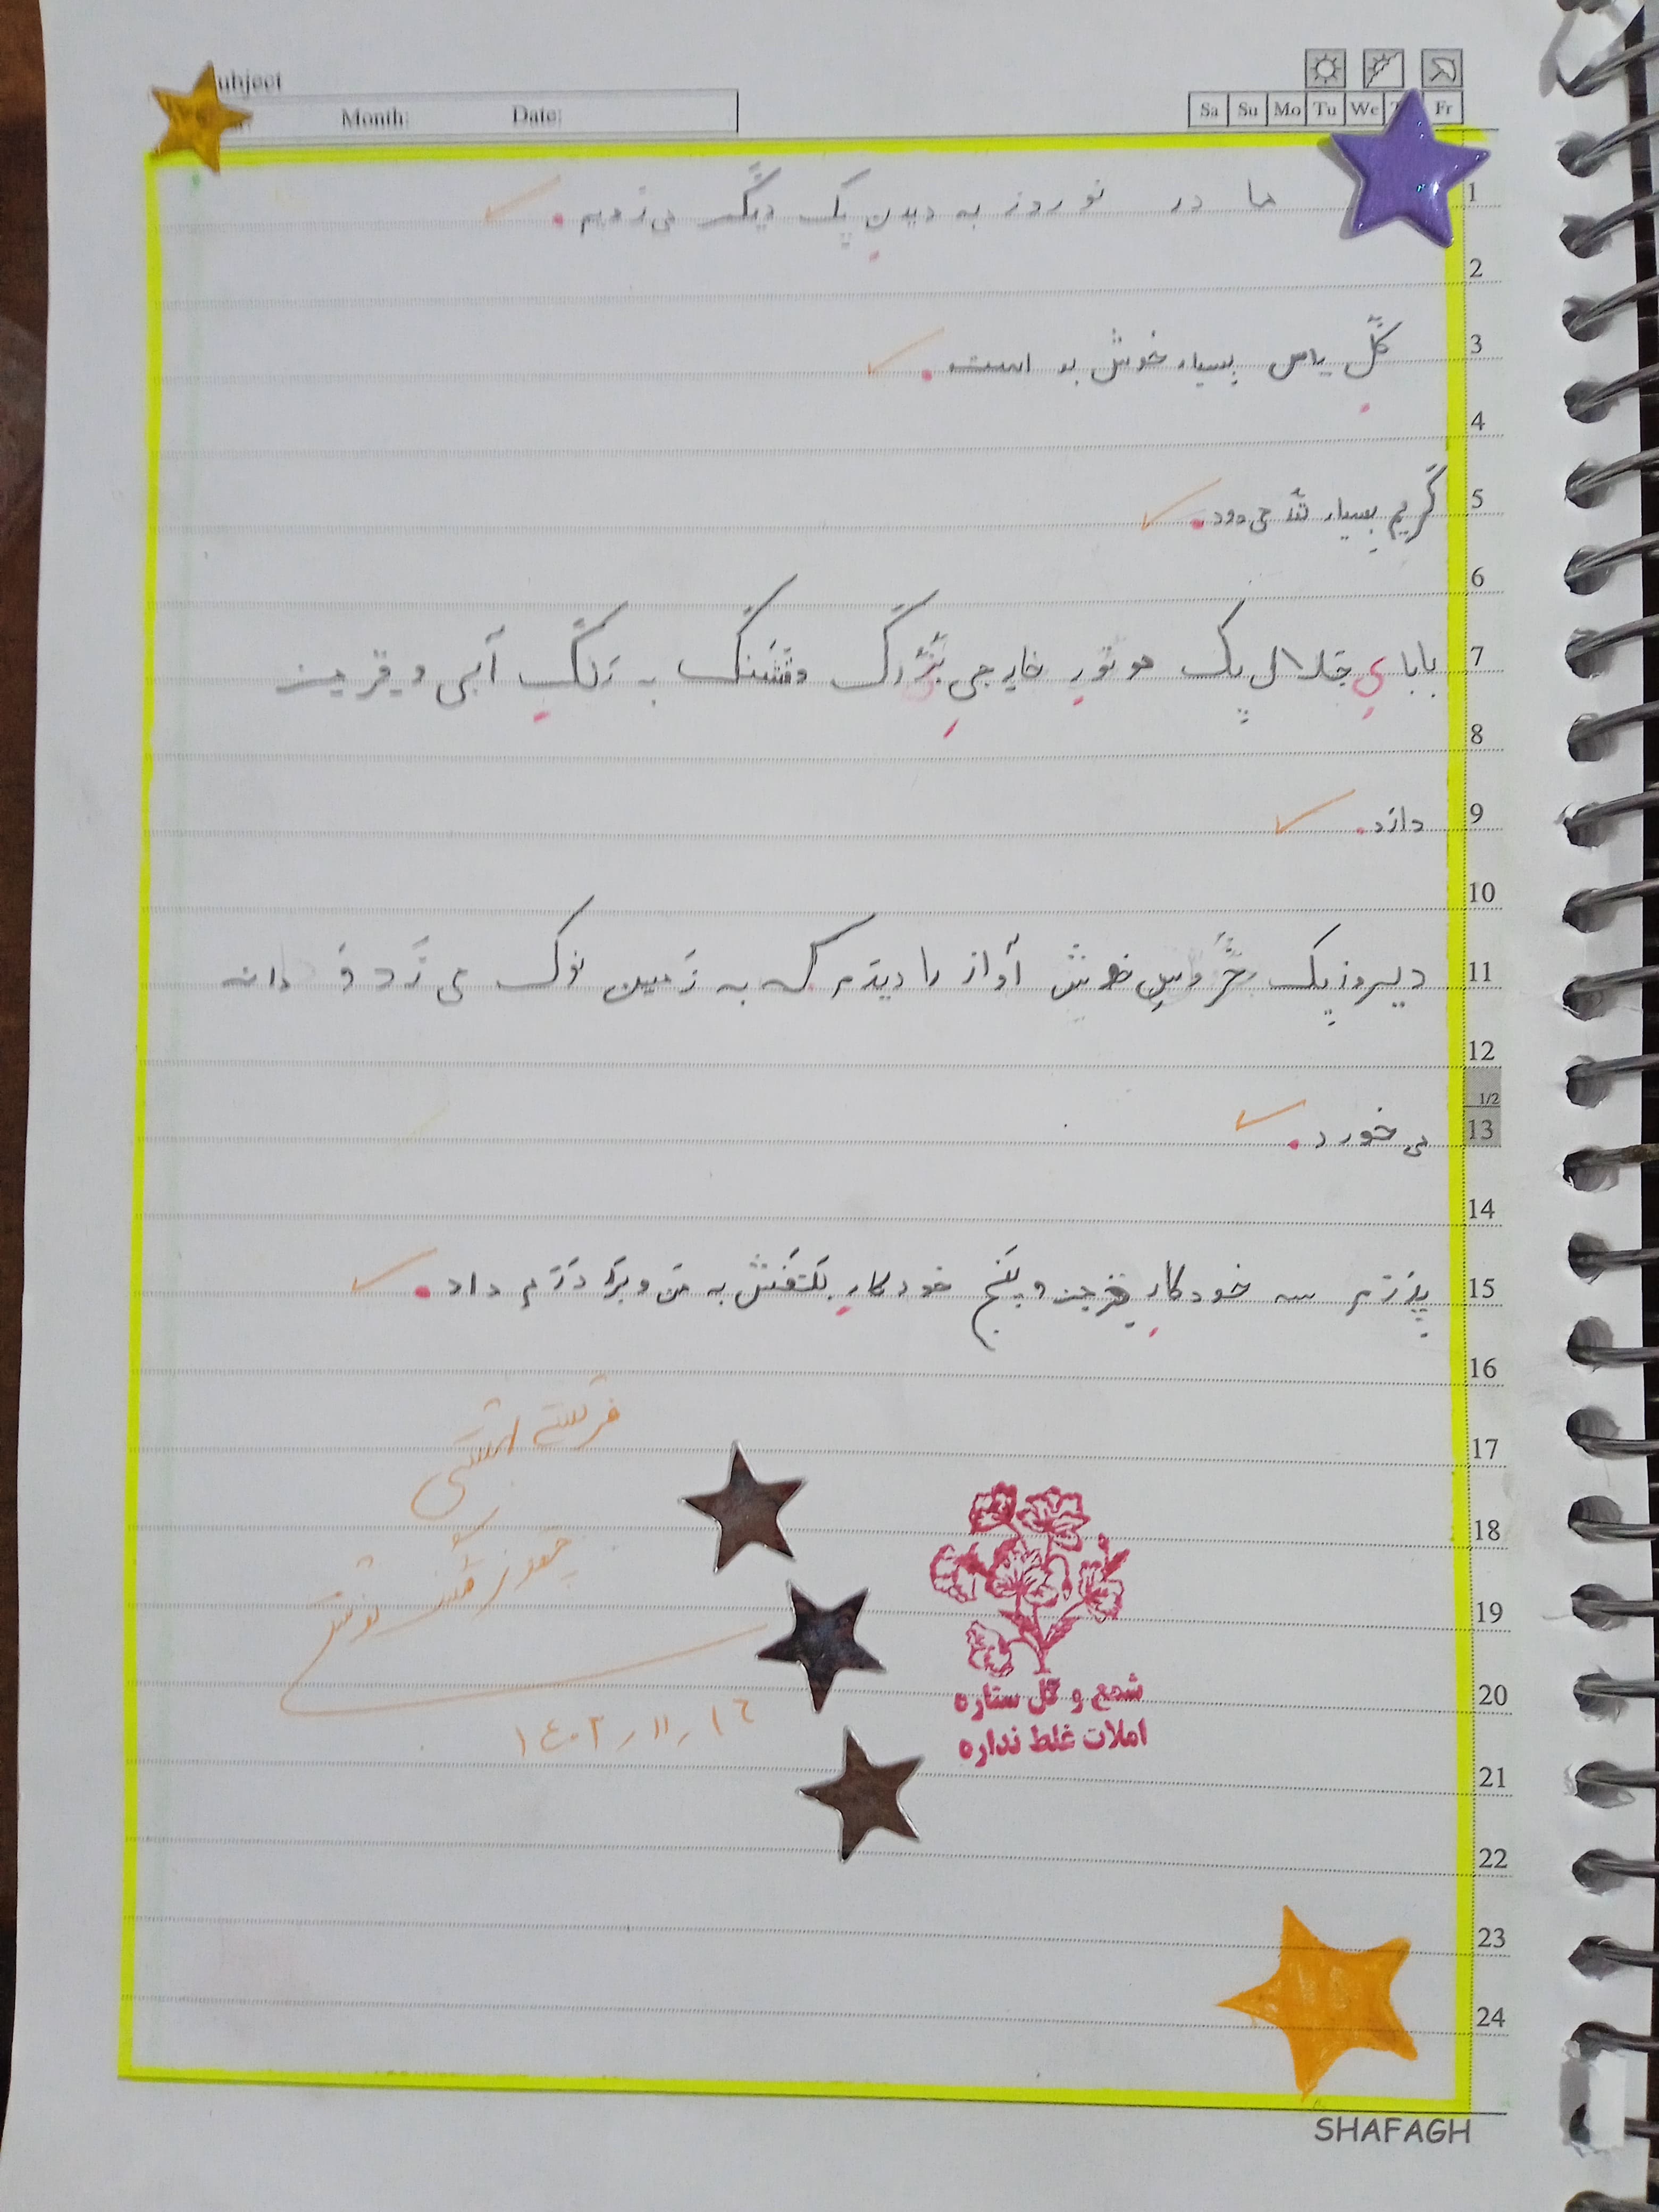 ubject
Month: Date:
Sa Su Mo Tu We Fr
1 ما در نوروز به دیدنِ یک دیگَر می‌رَویم.
2
3 گُلِ یاس بِسیار خوش بو است.
4
5 کَریم بِسیار تُند می‌دَوَد.
6
7 بابایِ جَلال یک موتورِ خارجیِ بُزُرگ و قَشَنگ به رَنگِ آبی و قِرمِز
8
9 دارَد.
10
11 دیروز یک خُروسِ خوش آواز را دیدَم که به زَمین نوک می زَد وَ دانه
12
1/2
13 می خورد.
14
15 پِدَرَم سه خودکارِ قِرمِز و پَنج خودکارِ بَنَفش به مَن و بَرادَرَم داد.
16
17 فرشته بهشتی
18 چقدر قشنگ نوشتی
19
20 شمع و گل ستاره
املات غلط نداره
۱۴۰۲/۱۱/۱۶
21
22
23
24
SHAFAGH